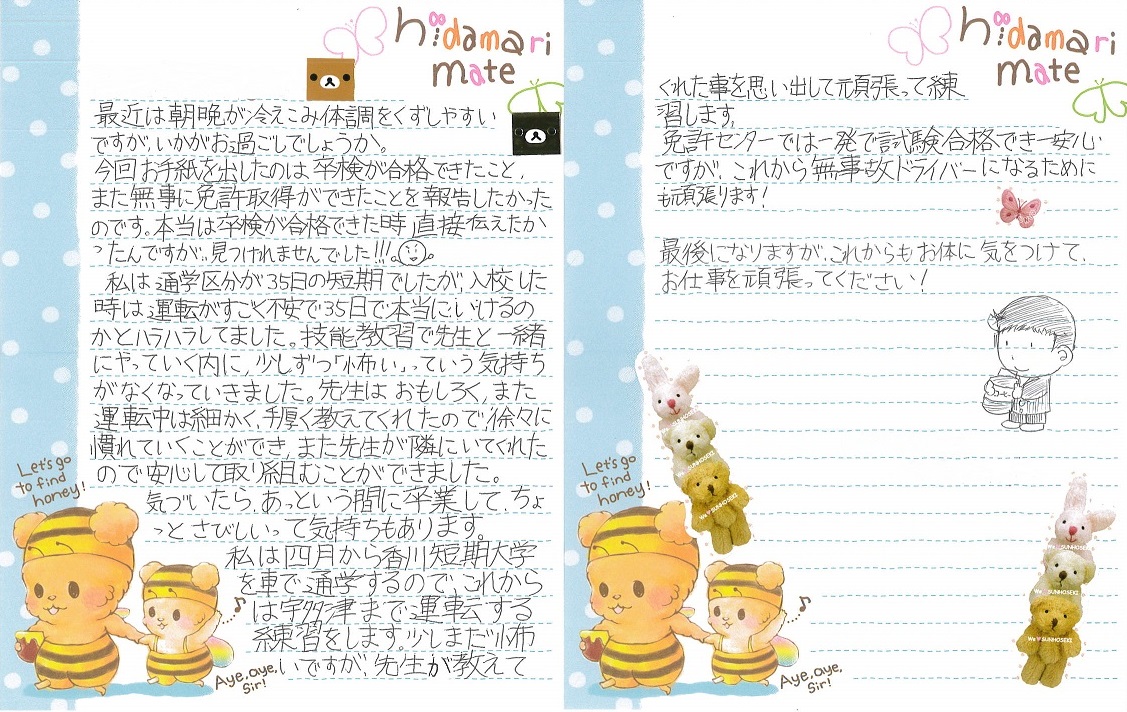 hidamari
mate
最近は朝晩が冷えこみ体調をくずしやすい
ですが、いかがお過ごしでしょうか。
今回お手紙を出したのは卒検が合格できたこと、
また無事に免許取得ができたことを報告したかった
のです。本当は卒検が合格できた時直接伝えたか
ったんですが、見つけれませんでした!!!
私は通学区分が35日の短期でしたが、入校した
時は運転がすごく不安で35日で本当にいけるの
かとハラハラしてました。技能教習で先生と一緒
にやっていく内に、少しずつ「怖い」っていう気持ち
がなくなっていきました。先生はおもしろく、また
運転中は細かく、手厚く教えてくれたので、徐々に
慣れていくことができ、また先生が隣にいてくれた
ので安心して取り組むことができました。
気づいたら、あっという間に卒業して、ちょ
っとさびしいって気持ちもあります。
私は四月から香川短期大学
を車で通学するので、これから
は宇多津まで運転する
練習をします。少しまだ怖
いですが、先生が教えて
Let's go
to find
honey!
Aye, aye,
Sir!
hidamari
mate
くれた事を思い出して頑張って練
習します。
免許センターでは一発で試験合格でき一安心
ですが、これから無事故ドライバーになるために
も頑張ります!
最後になりますが、これからもお体に気をつけて、
お仕事を頑張ってください!
We♥SUNHOSEKI
We♥SUNHOSEKI
Let's go
to find
honey!
Aye, aye,
Sir!
We♥SUNHOSEKI
We♥SUNHOSEKI
We♥SUNHOSEKI